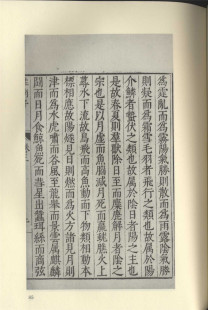 為霆亂而為霧陽氣勝則散而為雨露陰氣勝
則凝而為霜雪毛羽者飛行之類也故屬於陽
介鱗者蟄伏之類也故屬於陰日者陽之主也
是故春夏則羣獸除日至而麋鹿解月者陰之
宗也是以月虛而魚腦減月死而蠃蛖膲火上
蕁水下流故鳥飛而高魚動而下物類相動本
標相應故陽燧見日則燃而為火方諸見月則
津而為水虎嘯而谷風至龍舉而景雲屬麒麟
鬭而日月食鯨魚死而彗星出蠶珥絲而商弦